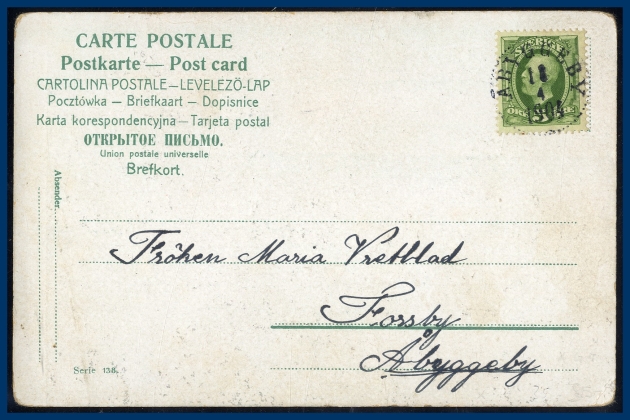 CARTE POSTALE
Postkarte — Post card
CARTOLINA POSTALE — LEVELEZÖ-LAP
Pocztówka — Briefkaart — Dopisnice
Karta korespondencyjna — Tarjeta postal
ОТКРЫТОЕ ПИСЬМО.
Union postale universelle
Brefkort.
18
4
Absender.
Fröken Maria Vretblad
Forssby
Åbyggeby
Serie 138.